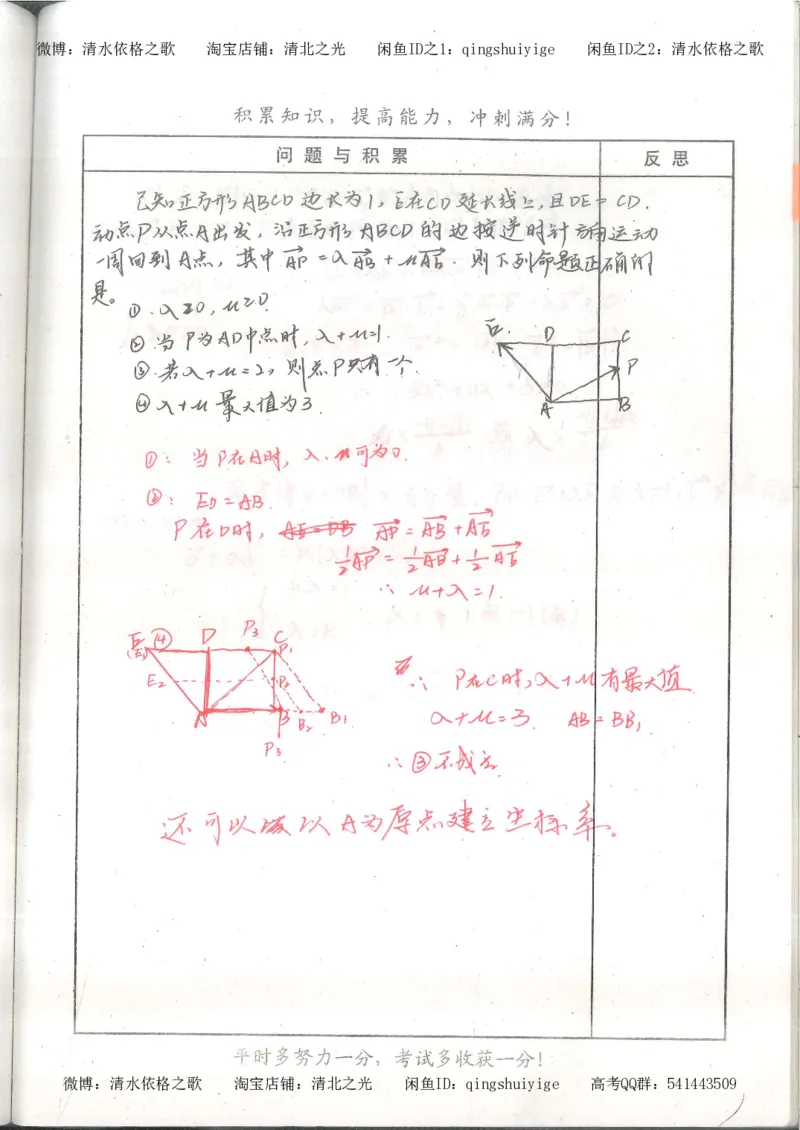 微博：清水依格之歌 淘宝店铺：清北之光 闲鱼ID之1：qingshuiyige 闲鱼ID之2：清水依格之歌
积累知识，提高能力，冲刺满分！
问题与积累 反思
已知正方形ABCD边长为1，E在CD延长线上，且DE=CD.
动点P从点A出发，沿正方形ABCD的边按逆时针方向运动
一周回到A点，其中AP=λAB+μAE. 则下列命题正确的
是。
①. λ≥0, μ≥0.
②当P为AD中点时，λ+μ=1.
③.若λ+μ=2，则点P只有一个.
④λ+μ最大值为3.
E. D C
P
A B
①：当P在A时，λ、μ可为0.
②：ED=AB.
P在D时， AP=AB+AE
1/2AP=1/2AB+1/2AE
∴ μ+λ=1.
E ④ D P3 C
(E1) P1
E2 P2
A B B2 B1
P3
∴ P在C时，λ+μ有最大值
λ+μ=3. AB=BB1
∴③不成立
还可以以A为原点建立坐标系。
平时多努力一分，考试多收获一分！
微博：清水依格之歌 淘宝店铺：清北之光 闲鱼ID：qingshuiyige 高考QQ群：541443509